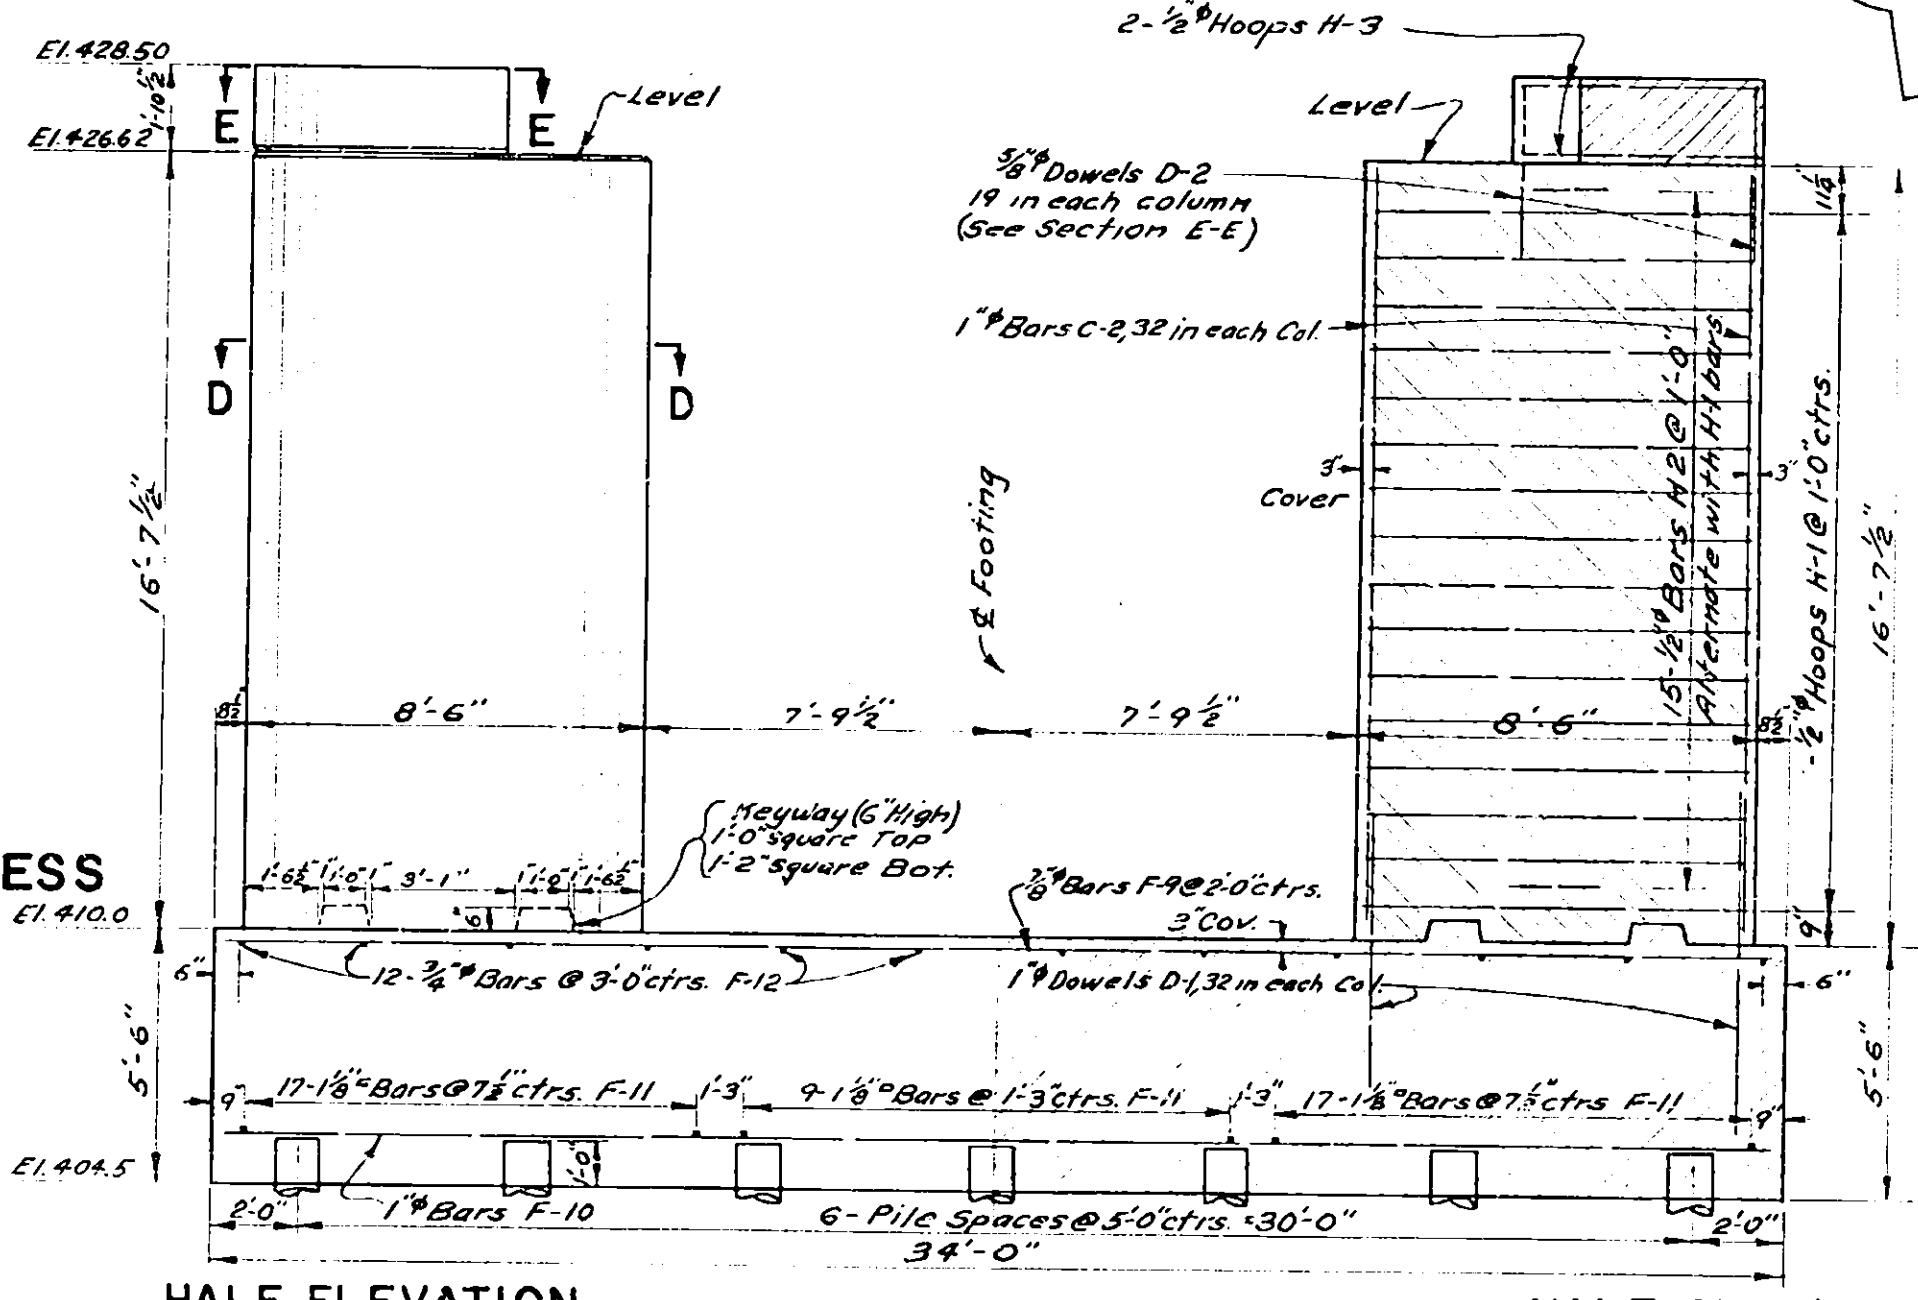 2-½"ϕ Hoops H-3
El. 428.50
1'-10½"
E E
Level
El. 426.62
Level
⅝"ϕ Dowels D-2
19 in each column
(See Section E-E)
11¼"
1"ϕ Bars C-2, 32 in each Col.
D D
3"
Cover
3"
15-½"ϕ Bars H-2 @ 1'-0"
Alternate with H-1 bars
½"ϕ Hoops H-1 @ 1'-0" ctrs.
16'-7½"
16'-7½"
℄ Footing
8½" 8'-6" 7'-9½" 7'-9½" 8'-6" 8½"
Keyway (6" High)
1'-0" square Top
1'-2" square Bot.
ESS
1'-6½" 1" 1'-0" 1" 3'-1" 1" 1'-0" 1" 1'-6½"
6"
⅞"ϕ Bars F-9 @ 2'-0" ctrs.
3" Cov.
9"
El. 410.0
6" 12-¾"ϕ Bars @ 3'-0" ctrs. F-12
1"ϕ Dowels D-1, 32 in each Col.
6"
5'-6"
5'-6"
9" 17-1⅛"▫ Bars @ 7½" ctrs. F-11 1'-3" 9-1⅛"▫ Bars @ 1'-3" ctrs. F-11 1'-3" 17-1⅛"▫ Bars @ 7½" ctrs F-11 9"
1'-0"
El. 404.5
2'-0" 1"ϕ Bars F-10 6-Pile Spaces @ 5'-0" ctrs. = 30'-0" 2'-0"
34'-0"
HALF ELEVATION